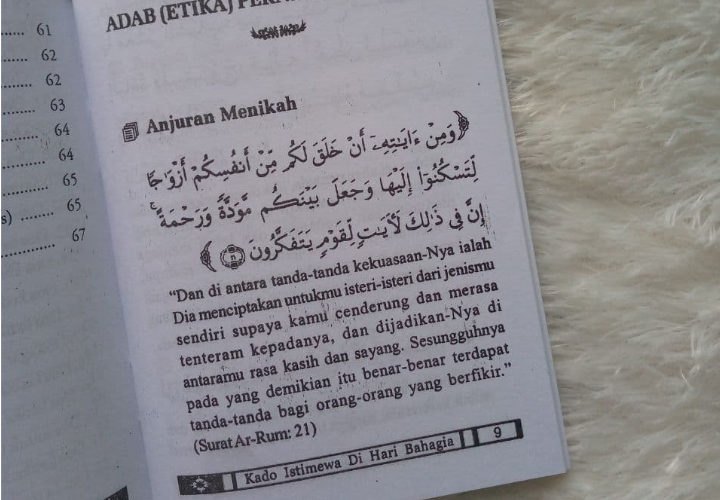 ..... 61
..... 62
..... 62
..... 63
..... 64
..... 64
..... 65
s) ....... 65
............. 67
ADAB (ETIKA)
Anjuran Menikah
﴿وَمِنْ ءَايَـٰتِهِۦٓ أَنْ خَلَقَ لَكُم مِّنْ أَنفُسِكُمْ أَزْوَٰجًا
لِّتَسْكُنُوٓا۟ إِلَيْهَا وَجَعَلَ بَيْنَكُم مَّوَدَّةً وَرَحْمَةً ۚ
إِنَّ فِى ذَٰلِكَ لَـَٔايَـٰتٍ لِّقَوْمٍ يَتَفَكَّرُونَ ﴾
“Dan di antara tanda-tanda kekuasaan-Nya ialah
Dia menciptakan untukmu isteri-isteri dari jenismu
sendiri supaya kamu cenderung dan merasa
tenteram kepadanya, dan dijadikan-Nya di
antaramu rasa kasih dan sayang. Sesungguhnya
pada yang demikian itu benar-benar terdapat
tanda-tanda bagi orang-orang yang berfikir.”
(Surat Ar-Rum: 21)
Kado Istimewa Di Hari Bahagia 9